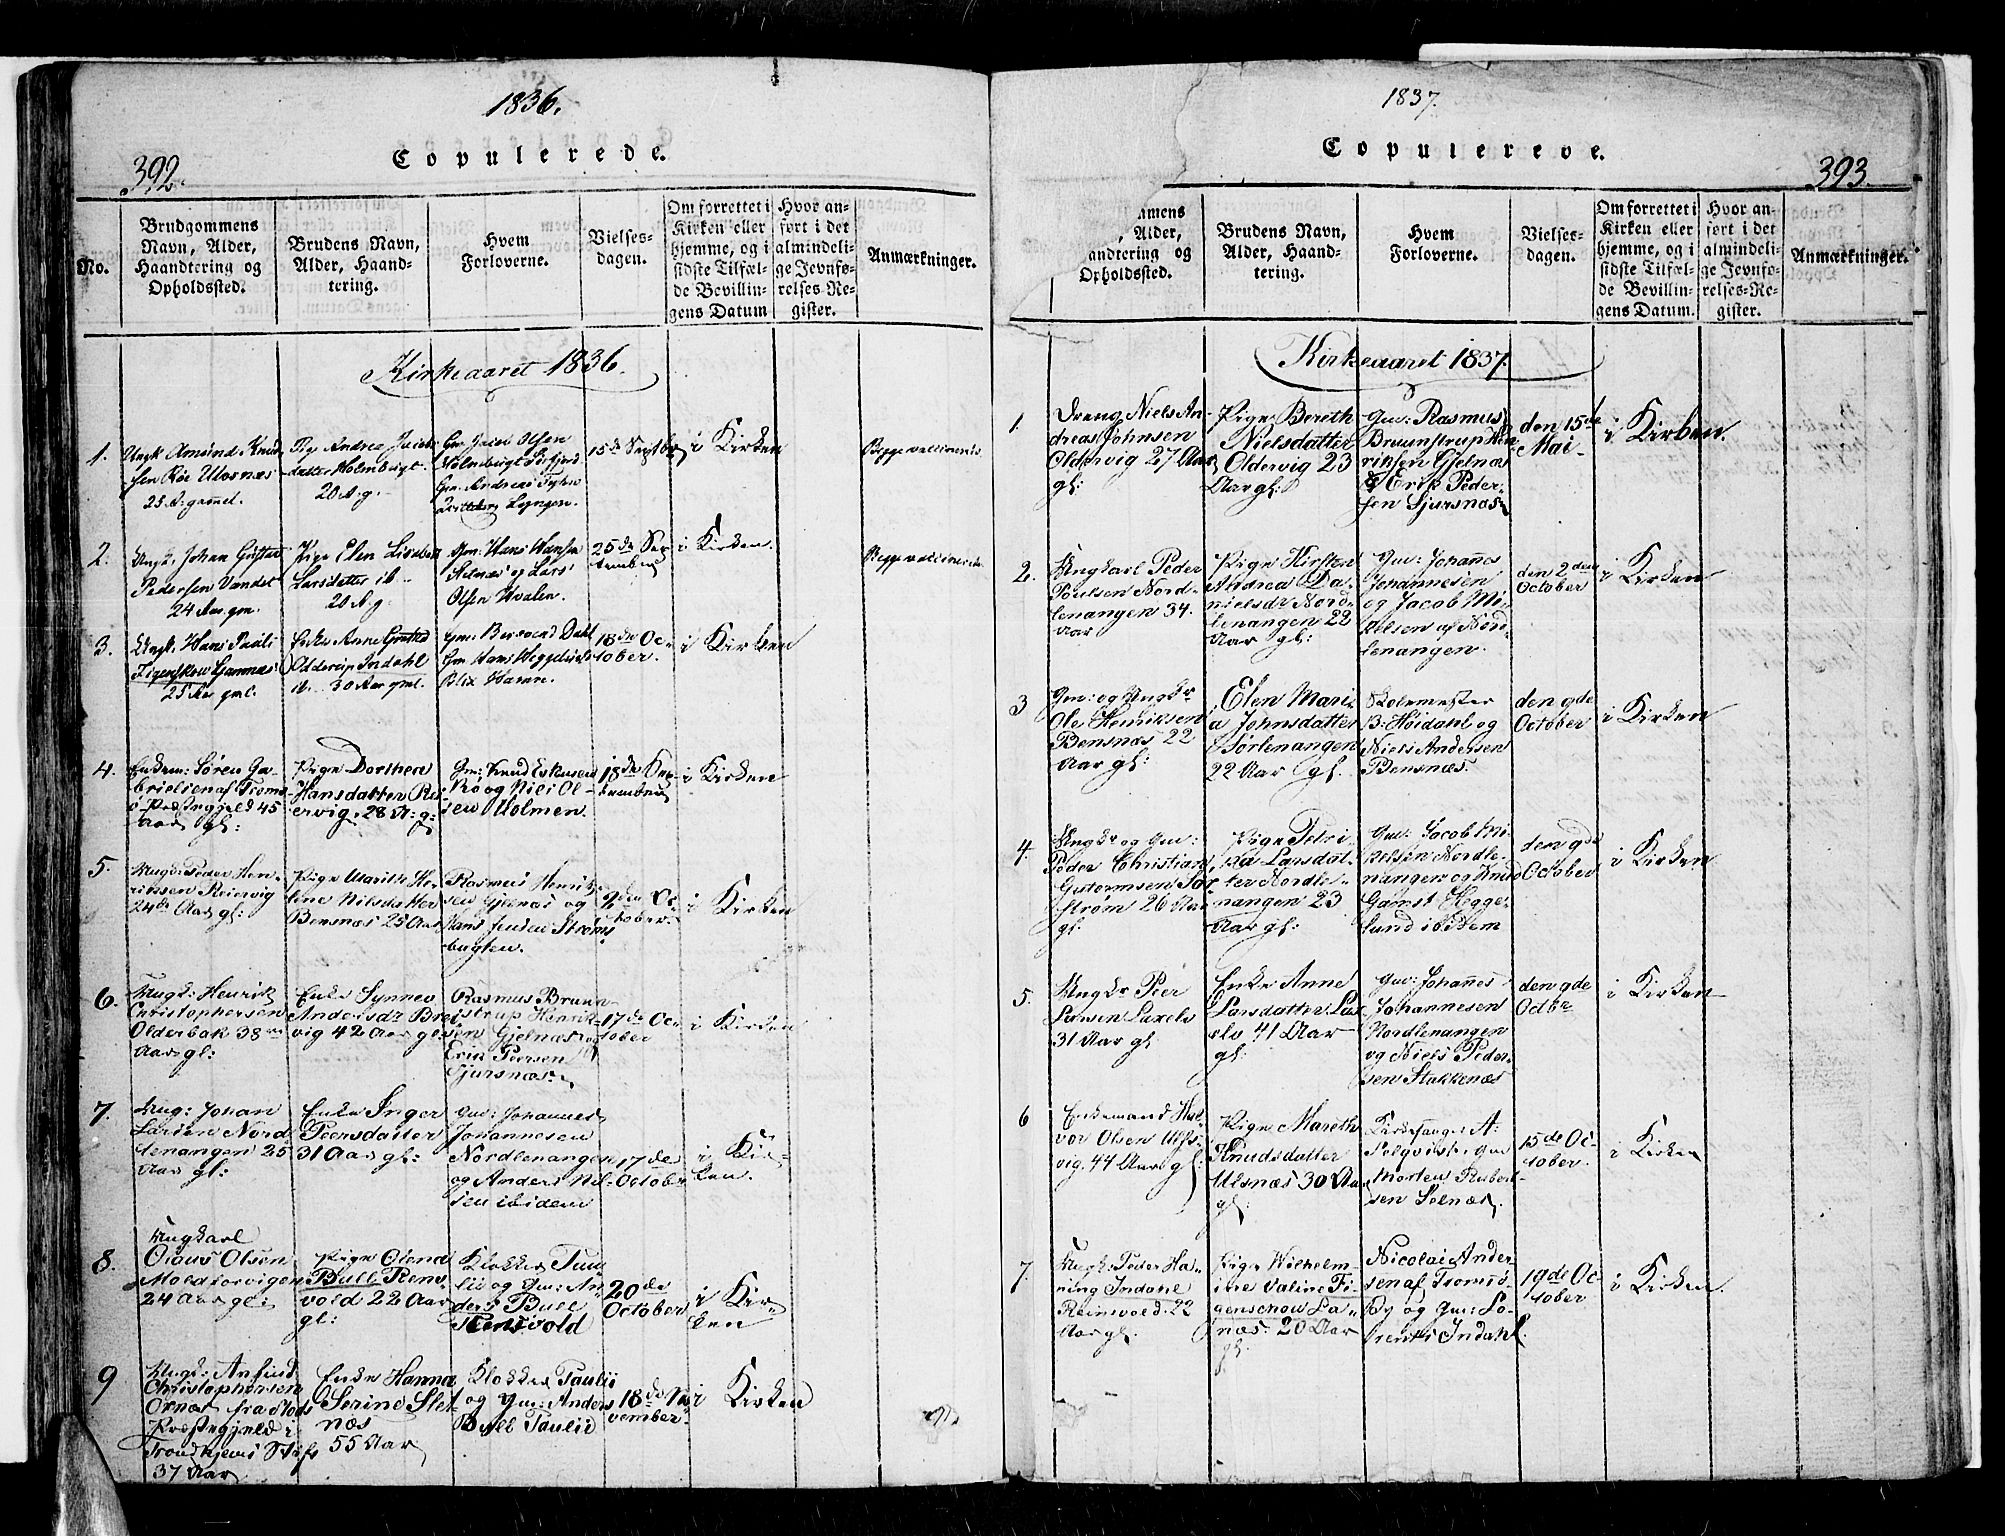 1836.
392.
Copulerede.
No.
Brudgommens
Navn, Alder,
Haandtering og
Opholdssted.
Brudens Navn,
Alder, Haand-
tering.
Hvem
Forloverne.
Vielses-
dagen.
Om forrettet i
Kirken eller
hjemme, og i
sidste Tilfæl-
de Bevillin-
gens Datum
Hvor an-
ført i det
almindeli-
ge Jevnfø-
relses-Re-
gister.
Anmærkninger.
Kirkeaaret 1836.
1.
Ungk Amund Knud
sen
25 A: gammel.
Pige Andrea Jacobs
datter Holmbugt.
20 A. g.
Olsen
Holmbugt
Gm. Andreas
Lyngen.
15de Septbr
i Kirken
Begge vaccinerede
2.
Ungk. Johan Gustav
Pedersen
24 Aar gm.
Pige Elen Lisabeth
Larsdatter ib.
20 A. g.
Gm: Hans Hansen
og Lars
Olsen Hvalen.
25de Sep
tember
i Kirken.
Begge vaccinerede
3.
Ungk. Hans Pauli
Figenskow
25 Aar gml.
Enke Anne
Indahl
ib. 30 Aar gml.
Gm: Dahl
Gm Hans Heggelund
Blix Hamn.
18de Oc-
tober.
i Kirken
4.
Enkem: Søren Ga-
brielsen af Troms
ø Præstegjeld 45
Aar gl:
Pige Dorthea
Hansdatter Rei
ervig. 28 A: g:
Gm: Knud
og Nils Ol-
sen Holmen.
18de Sep
tember
i Kirken
5.
Ungk: Peder Hen-
riksen Reiervig
24de Aar gl:
Pige
Nilsdatter
Bensnæs 25 Aar
Rasmus Henrik
sen Gjelnæs og
Hans Jensen Strøms
bugten.
9de Oc-
tober.
i Kirken
6.
Ungk: Henrik
Christophersen
Olderbak 38
Aar gl:
Enke Synnev
Andersdr Brei
vig 42 Aar gl:
Rasmus Bruun-
strup Henrik-
sen Gjelnæs og
Erik Peersen
Sjursnæs.
17de Oc-
tober
i Kirken
7.
Ung: Johan
Larsen Nord
lenangen 25
Aar gl:
Enke Inger
Peersdatter
31 Aar gl:
Gm: Johannes
Johannesen
Nordlenangen
og Anders Nil-
sen ibidem
17de
October
i Kir-
ken.
8.
Ungkarl
Olaus Olsen
Moldforvigen
24 Aar gl:
Pige Olena
Bull Rens
vold 22 Aar
gl:
Klokker Tuu
lie og Gm: An-
ders Bull
Rensvold
20de
October
i Kir-
ken
9
Ungk: Anfind
Christophersen
Ornæs fra
Præstegjeld i
Trondhjems Stift
37 Aar
Enke Hanna
Serine Slet
næs
55 Aar
Klokker Taulie
og Gm: Anders
Bull Taulie
18de No
vember
i Kirken
1837.
Copulerede.
393.
mmens
, Alder,
andtering og
Opholdssted.
Brudens Navn,
Alder, Haand-
tering.
Hvem
Forloverne.
Vielses-
dagen.
Om forrettet i
Kirken eller
hjemme, og i
sidste Tilfæl-
de Bevillin-
gens Datum.
Hvor an-
ført i det
almindeli-
ge Jevnfø-
relses-Re-
gister.
Anmærkninger.
Kirkeaaret 1837.
1.
Dreng Niels An-
dreas Johnsen
Oldervig 27 Aar
gl:
Pige Bereth
Nielsdatter
Oldervig 23
Aar gl:
Gm: Rasmus
Bruunstrup Hen
riksen Gjelnæs
& Erik Peder-
sen Sjursnæs
den 15de
Mai
i Kirken.
2.
Ungkarl Peder
Poulsen Nord-
lenangen 34.
Aar
Pige Kirsten
Andrea Da-
nielsdr Nord-
lenangen 22
Aar gl:
Gm: Johannes
Johannesen
og Jacob Mi-
kelsen af Nord-
lenangen.
den 2den
October
i Kirken
3
Gm: og Ungkr
Ole Henriksen
Bensnæs 22
Aar gl:
Elen Mari-
a Johnsdatter
Sørlenangen
22 Aar gl.
Skolemester
B. Høidahl og
Niels Andersen
Bensnæs.
den 9de
October
i Kirken
4.
Ungkr og Gm:
Peder Christian
Guttormsen Sør
strøm 26 Aar
gl:
Pige Petri-
ka Larsdat-
ter Nordle-
nangen 23
Aar gl:
Gm: Jacob Mi-
kelsen Nordle-
nangen og Knud
Gamst Hegge-
lund
den 9de
October
i Kirken
5.
Ungkr Peer
Larsen Laxelv
31 Aar gl.
Enke Anne
Larsdatter Lax
elv 41 Aar
gl:
Gm: Johannes
Johannesen
Nordlenangen
og Niels Peder-
sen Stakkenæs
den 9de
Octbr
i Kirken
6
Enkemand Hal
vor Olsen Ulfs-
vig. 44 Aar gl:
Pige Mareth
Knudsdatter
Ulsnæs 30 Aar
gl:
Kirkesanger A:
Selqvist & Gm
Morten Rubert-
sen Selnæs.
15de Oc-
tober.
i Kirken
7.
Ungk: Peder Ha-
ning Indahl
Reinsvold. 22
Aar gl.
Pige Wilhelm-
ine Valine Fi-
genschou La-
næs: 20 Aar
gl.
Nicolai Ander-
sen af Tromsø
By og Gm: Lo-
rents Indahl.
19de Oc-
tober
i Kirken.